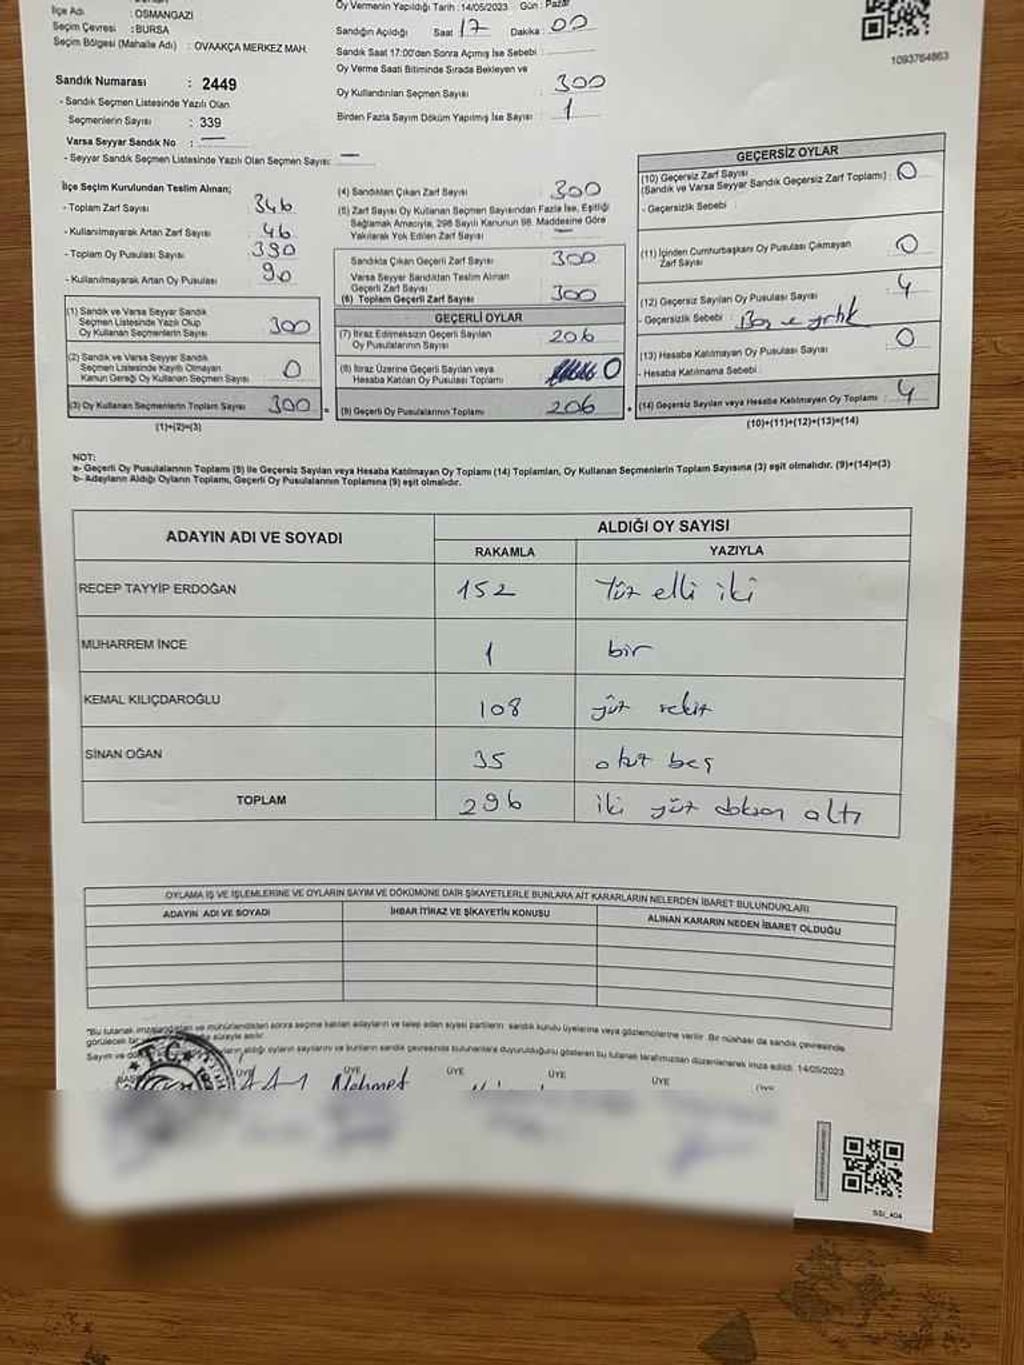 İlçe Adı : OSMANGAZİ
Seçim Çevresi : BURSA
Seçim Bölgesi (Mahalle Adı) : OVAAKÇA MERKEZ MAH.
Sandık Numarası : 2449
- Sandık Seçmen Listesinde Yazılı Olan
Seçmenlerin Sayısı : 339
Varsa Seyyar Sandık No : —
- Seyyar Sandık Seçmen Listesinde Yazılı Olan Seçmen Sayısı: —
Oy Vermenin Yapıldığı Tarih : 14/05/2023 Gün : Pazar
Sandığın Açıldığı Saat : 17 Dakika : 00
Sandık Saat 17:00'dan Sonra Açımış İse Sebebi :
Oy Verme Saati Bitiminde Sırada Bekleyen ve
Oy Kullandırılan Seçmen Sayısı : 300
Birden Fazla Sayım Döküm Yapılmış İse Sayısı : 1
1093764863
İlçe Seçim Kurulundan Teslim Alınan;
- Toplam Zarf Sayısı : 346
- Kullanılmayarak Artan Zarf Sayısı : 46
- Toplam Oy Pusulası Sayısı : 390
- Kullanılmayarak Artan Oy Pusulası : 90
(1) Sandık ve Varsa Seyyar Sandık
Seçmen Listesinde Yazılı Olup
Oy Kullanan Seçmenlerin Sayısı : 300
(2) Sandık ve Varsa Seyyar Sandık
Seçmen Listesinde Kayıtlı Olmayan
Kanun Gereği Oy Kullanan Seçmen Sayısı : 0
(3) Oy Kullanan Seçmenlerin Toplam Sayısı : 300
(1)+(2)=(3)
(4) Sandıktan Çıkan Zarf Sayısı : 300
(5) Zarf Sayısı Oy Kullanan Seçmen Sayısından Fazla İse, Eşitliği
Sağlamak Amacıyla, 298 Sayılı Kanunun 98. Maddesine Göre
Yakılarak Yok Edilen Zarf Sayısı : —
Sandıkta Çıkan Geçerli Zarf Sayısı : 300
Varsa Seyyar Sandıktan Teslim Alınan
Geçerli Zarf Sayısı :
(6) Toplam Geçerli Zarf Sayısı : 300
GEÇERLİ OYLAR
(7) İtiraz Edilmeksizin Geçerli Sayılan
Oy Pusulalarının Sayısı : 206
(8) İtiraz Üzerine Geçerli Sayılan veya
Hesaba Katılan Oy Pusulası Toplamı : 0
(9) Geçerli Oy Pusulalarının Toplamı : 206
GEÇERSİZ OYLAR
(10) Geçersiz Zarf Sayısı
(Sandık ve Varsa Seyyar Sandık Geçersiz Zarf Toplamı) : 0
- Geçersizlik Sebebi :
(11) İçinden Cumhurbaşkanı Oy Pusulası Çıkmayan
Zarf Sayısı : 0
(12) Geçersiz Sayılan Oy Pusulası Sayısı : 4
- Geçersizlik Sebebi : Boş ve yırtık
(13) Hesaba Katılmayan Oy Pusulası Sayısı : 0
- Hesaba Katılmama Sebebi :
(14) Geçersiz Sayılan veya Hesaba Katılmayan Oy Toplamı : 4
(10)+(11)+(12)+(13)=(14)
NOT:
a- Geçerli Oy Pusulalarının Toplamı (9) ile Geçersiz Sayılan veya Hesaba Katılmayan Oy Toplamı (14) Toplamları, Oy Kullanan Seçmenlerin Toplam Sayısına (3) eşit olmalıdır. (9)+(14)=(3)
b- Adayların Aldığı Oyların Toplamı, Geçerli Oy Pusulalarının Toplamına (9) eşit olmalıdır.
ADAYIN ADI VE SOYADI ALDIĞI OY SAYISI
RAKAMLA YAZIYLA
RECEP TAYYİP ERDOĞAN 152 Yüz elli iki
MUHARREM İNCE 1 bir
KEMAL KILIÇDAROĞLU 108 yüz sekiz
SİNAN OĞAN 35 otuz beş
TOPLAM 296 iki yüz doksan altı
OYLAMA İŞ VE İŞLEMLERİNE VE OYLARIN SAYIM VE DÖKÜMÜNE DAİR ŞİKAYETLERLE BUNLARA AİT KARARLARIN NELERDEN İBARET BULUNDUKLARI
ADAYIN ADI VE SOYADI İHBAR İTİRAZ VE ŞİKAYETİN KONUSU ALINAN KARARIN NEDEN İBARET OLDUĞU
"Bu tutanak imzalandıktan ve mühürlendikten sonra seçime katılan adayların ve talep eden siyasi partilerin sandık kurulu üyelerine veya gözlemcilerine verilir. Bir nüshası da sandık çevresinde
görülecek bir süreyle asılır.
Sayım ve aldığı oyların sayılarını ve bunların sandık çevresinde bulunanlara duyurulduğunu gösteren bu tutanak tarafımızdan düzenlenerek imza edildi. 14/05/2023
T.C.
ÜYE ÜYE ÜYE ÜYE ÜYE
Mehmet
SSI_404